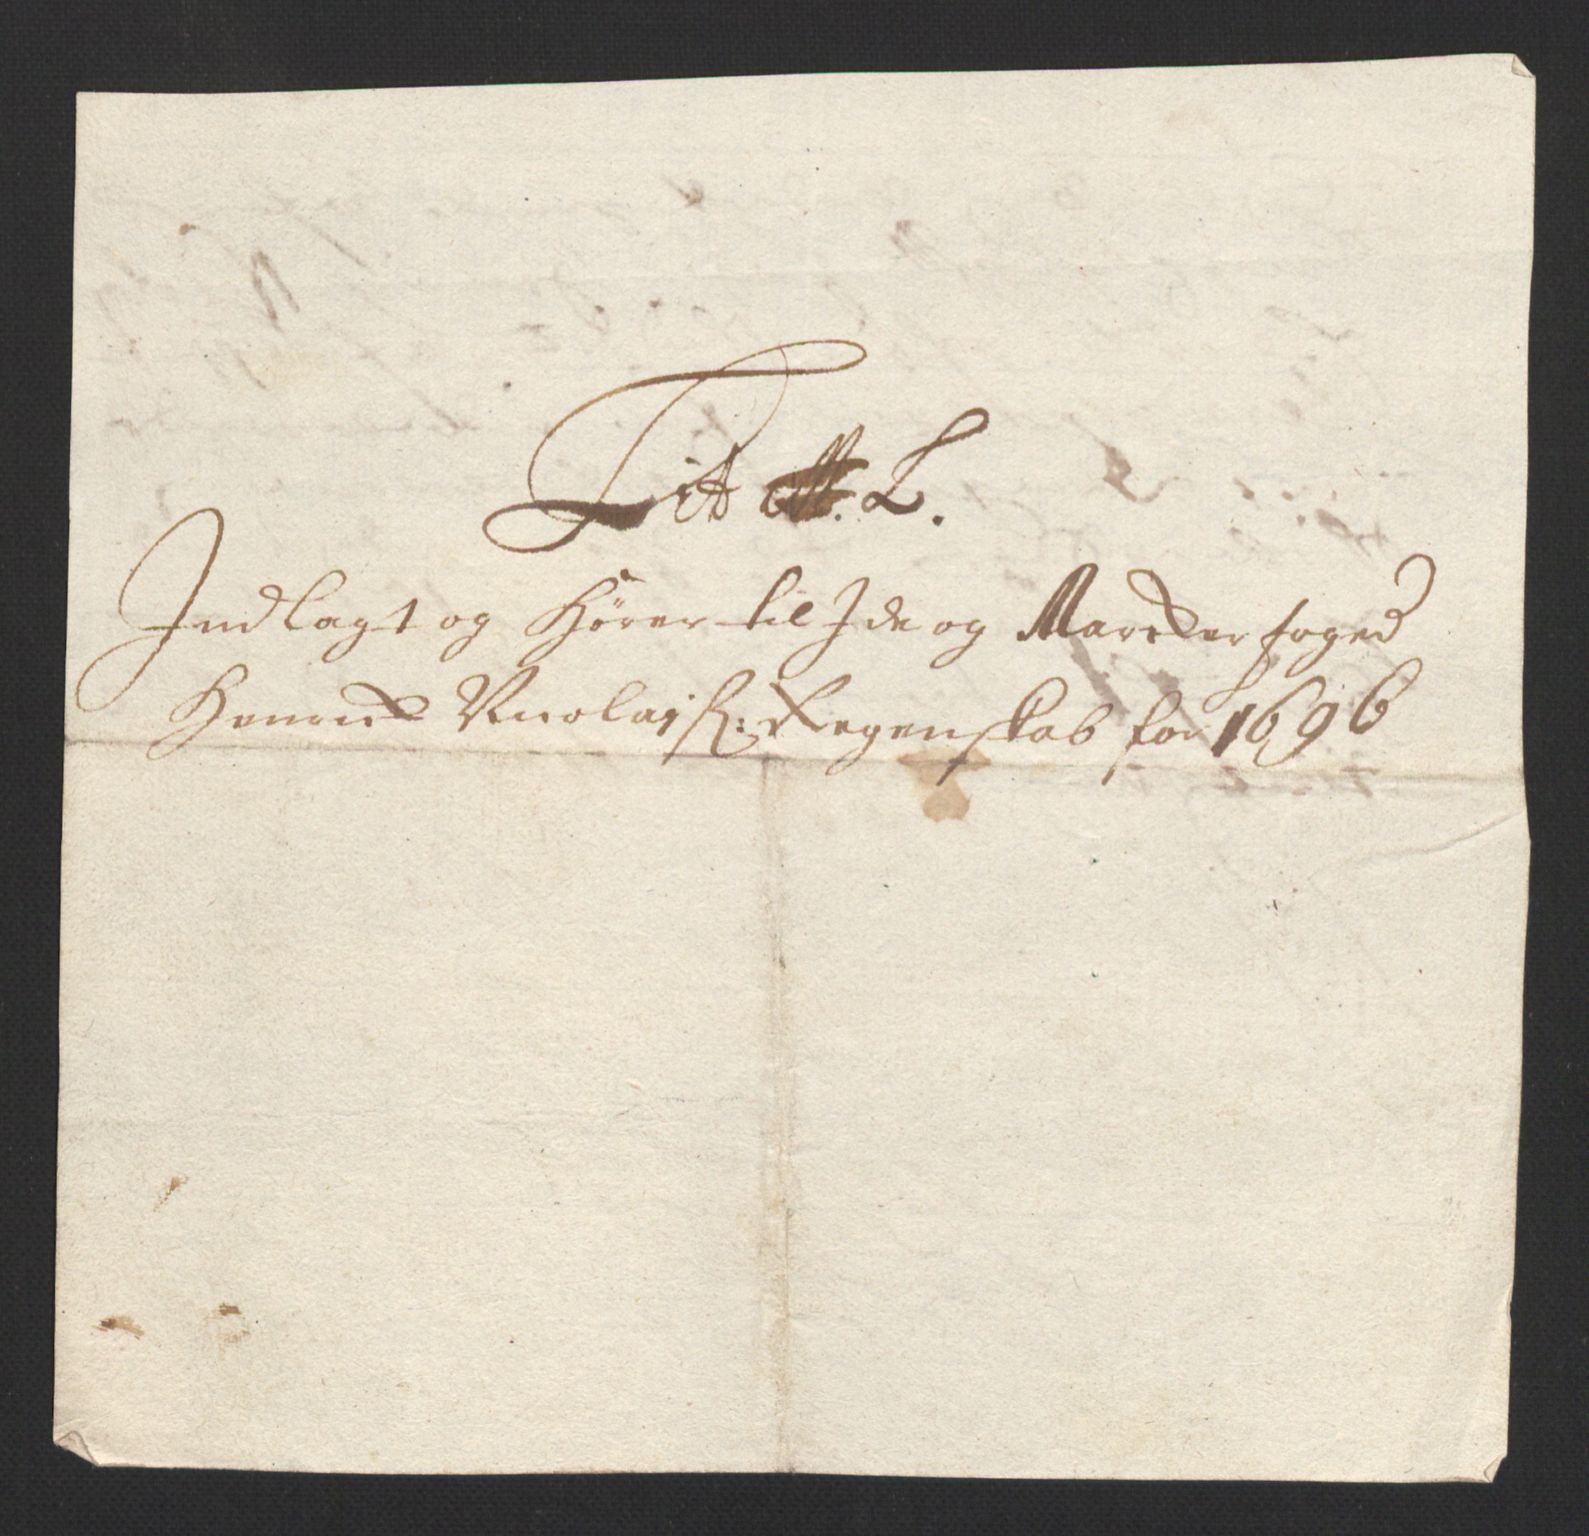 Lit M. L.
Indlagt og Hører til Ide og Marcker foged
Henrick Nicolaj S: Regenskab for 1696